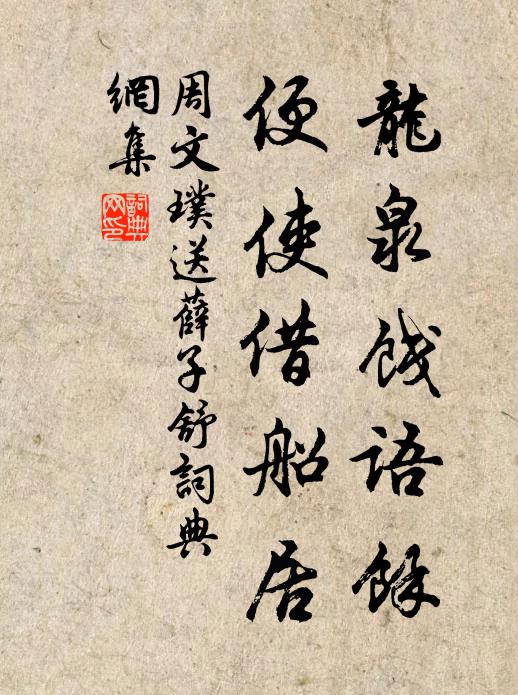 龍泉餞語餘
便使借船居
周文璞送薛子舒詞典
網集
詞典
网印